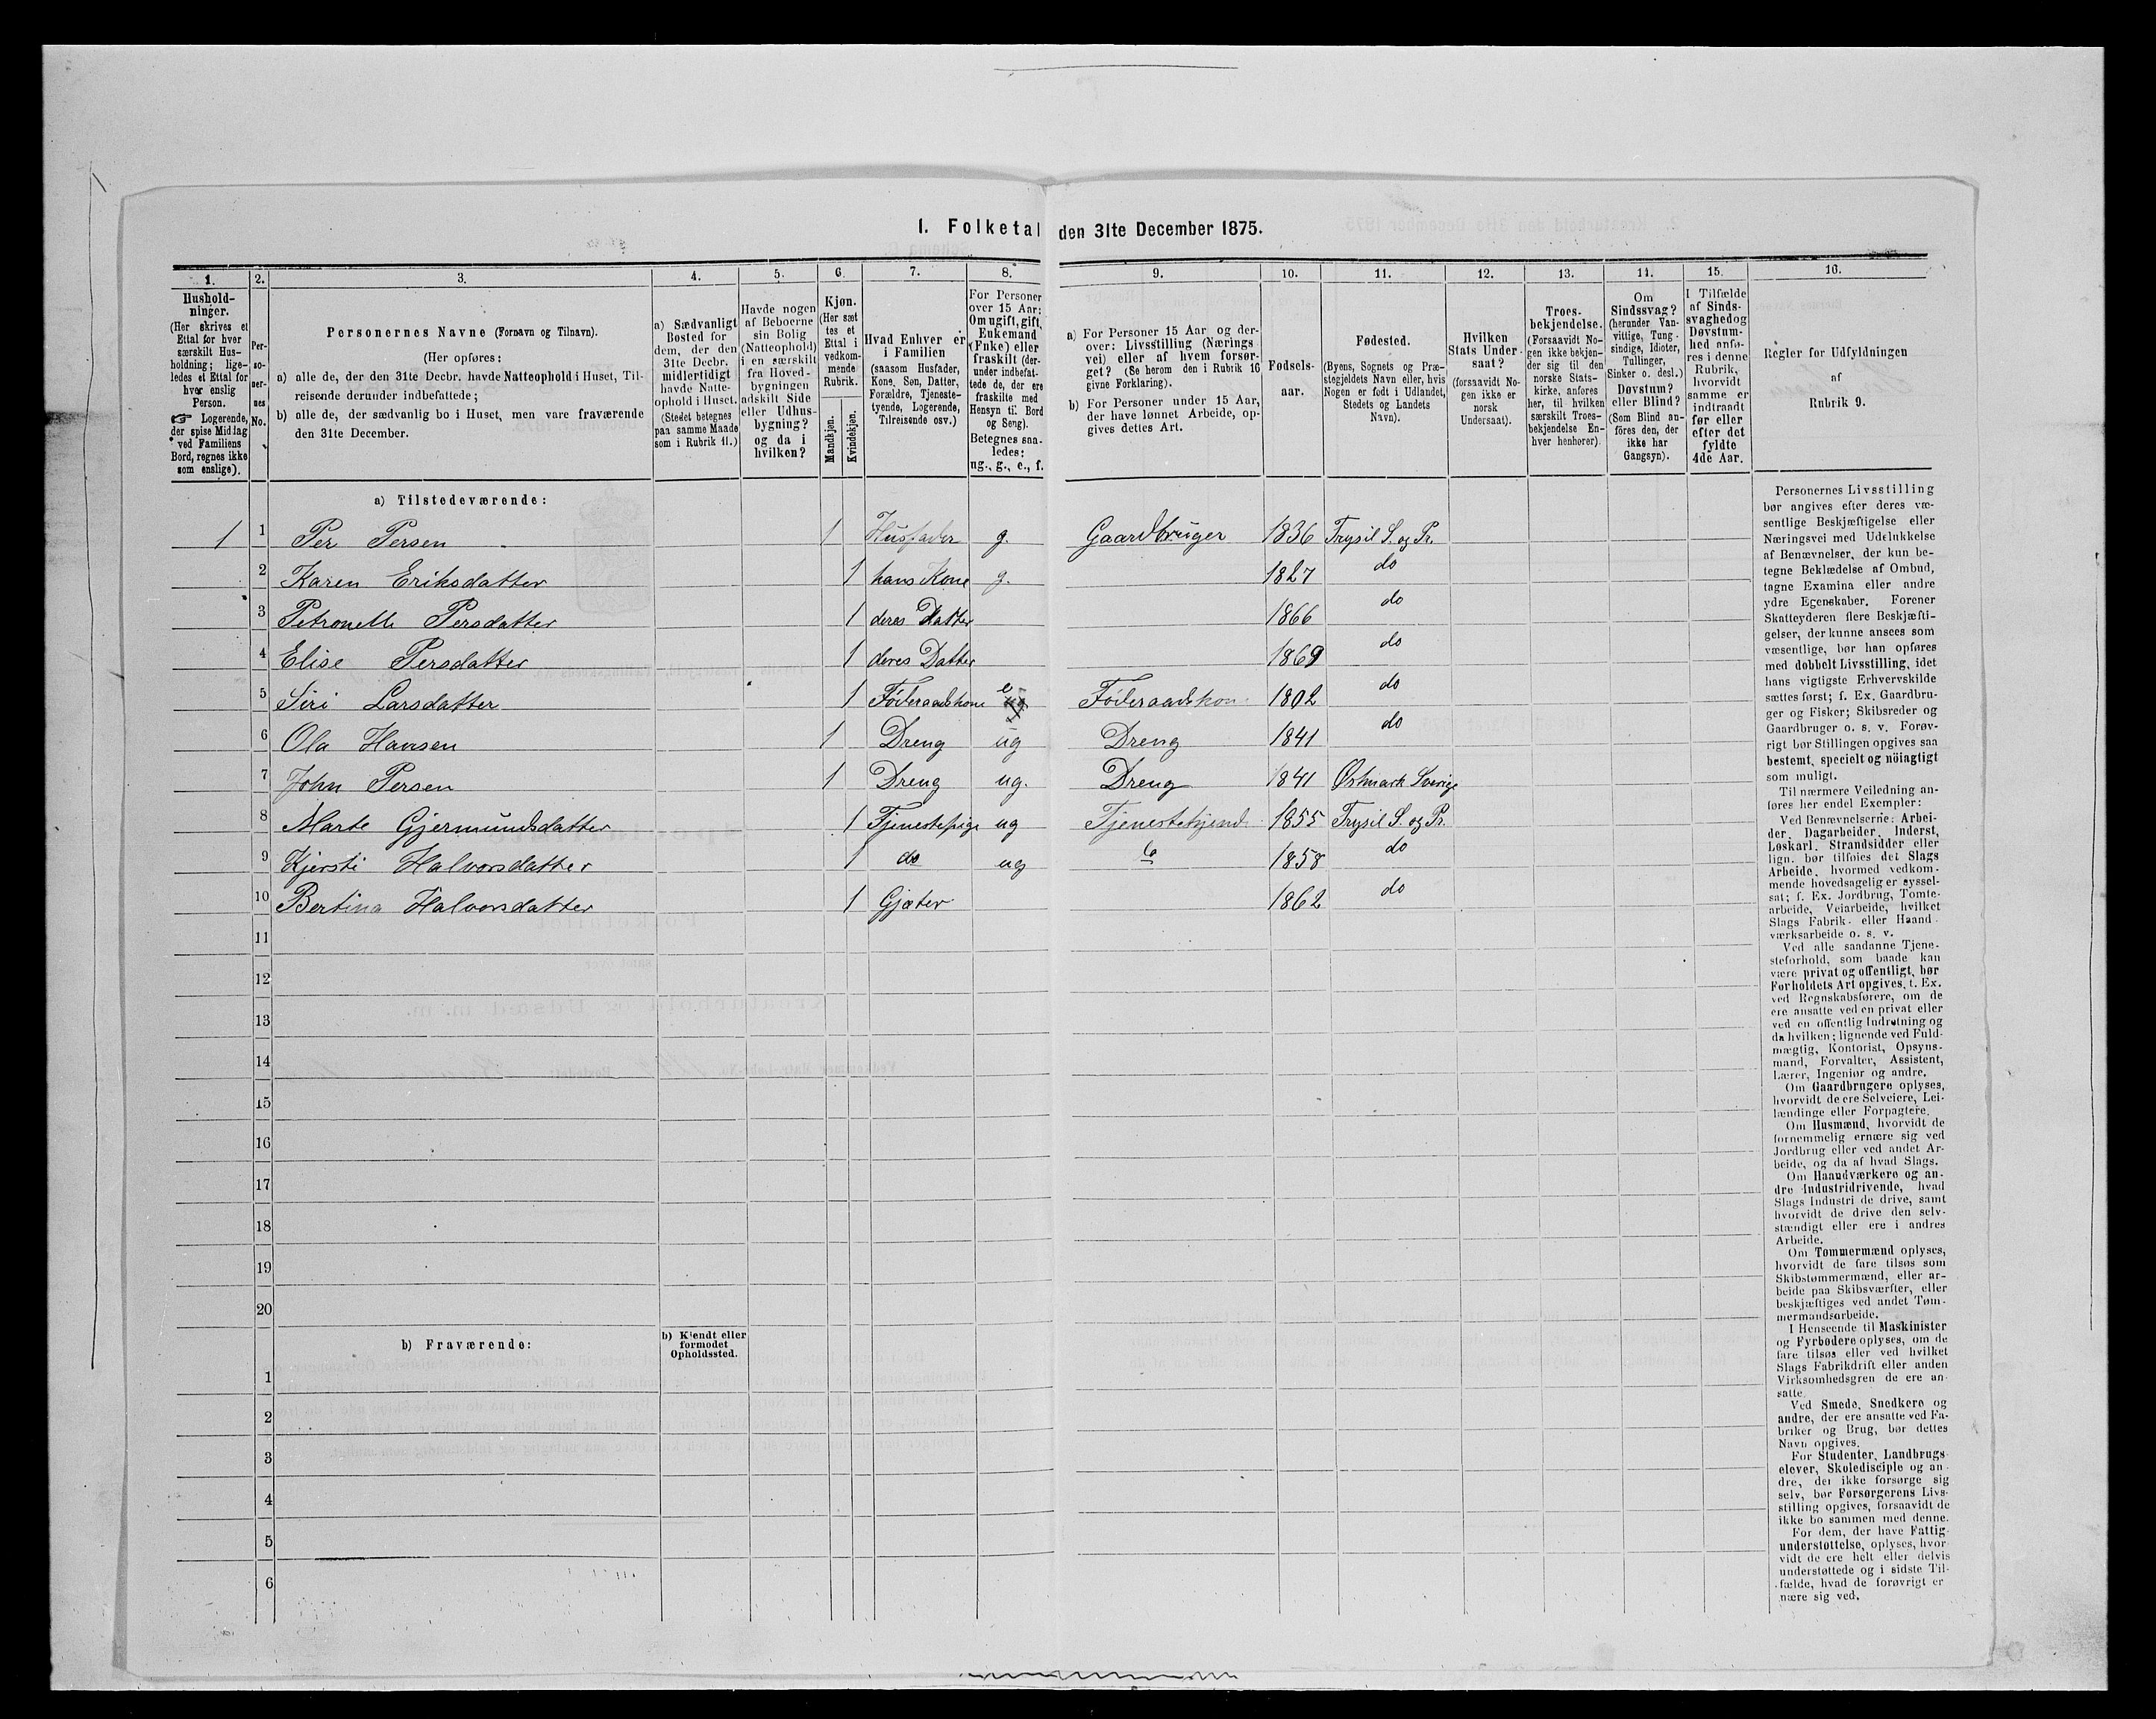 1. Folketal den 31te December 1875.
1. 2. 3. 4. 5. 6. 7. 8. 9. 10. 11. 12. 13. 14. 15. 16.
Hushold-
ninger.
(Her skrives et
Ettal for hver
særskilt Hus-
holdning; lige-
ledes et Ettal for
hver enslig
Person.
☞ Logerende,
der spise Middag
ved Familiens
Bord, regnes ikke
som enslige).
Per-
so-
ner-
nes
No.
Personernes Navne (Fornavn og Tilnavn).
(Her opføres:
a) alle de, der den 31te Decbr. havde Natteophold i Huset, Til-
reisende derunder indbefattede;
b) alle de, der sædvanlig bo i Huset, men vare fraværende
den 31te December.
a) Sædvanligt
Bosted for
dem, der den
31te Decbr.
midlertidigt
havde Natte-
ophold i Huset.
(Stedet betegnes
paa samme Maade
som i Rubrik 11.)
Havde nogen
af Beboerne
sin Bolig
(Natteophold)
i en særskilt
fra Hoved-
bygningen
adskilt Side
eller Udhus-
bygning?
og da i
hvilken?
Kjøn.
(Her sæt
tes et
Ettal i
vedkom-
mende
Rubrik.
Mandkjøn.
Kvindekjøn.
Hvad Enhver er
i Familien
(saasom Husfader,
Kone, Søn, Datter,
Forældre, Tjeneste-
tyende, Logerende,
Tilreisende osv.)
For Personer
over 15 Aar:
Om ugift, gift,
Enkemand
(Enke) eller
fraskilt (der-
under indbefat-
tede de, der ere
fraskilte med
Hensyn til Bord
og Seng).
Betegnes saa-
ledes:
ug., g., e., f.
a) For Personer 15 Aar og der-
over: Livsstilling (Nærings
vei) eller af hvem forsør-
get? (Se herom den i Rubrik 16
givne Forklaring).
b) For Personer under 15 Aar,
der have lønnet Arbeide, op-
gives dettes Art.
Fødsels-
aar.
Fødested.
(Byens, Sognets og Præ-
stegjeldets Navn eller, hvis
Nogen er født i Udlandet,
Stedets og Landets
Navn).
Hvilken
Stats Under-
saat?
(forsaavidt No-
gen ikke er
norsk
Undersaat).
Troes-
bekjendelse.
(Forsaavidt No-
gen ikke bekjen-
der sig til den
norske Stats-
kirke, anføres
her, til hvilken
særskilt Troes-
bekjendelse En-
hver henhører).
Om
Sindssvag?
(herunder Van-
vittige, Tung-
sindige, Idioter,
Tullinger,
Sinker o. desl.)
Døvstum?
eller Blind?
(Som Blind an-
føres den, der
ikke har
Gangsyn).
I Tilfælde
af Sinds-
svaghed og
Døvstum-
hed anfø-
res i denne
Rubrik,
hvorvidt
samme er
indtraadt
før eller
efter det
fyldte
4de Aar.
Regler for Udfyldningen
af
Rubrik 9.
a) Tilstedeværende:
1 1 Per Persen 1 Husfader g. Gaardbruger 1836 Trysil S. og Pr.
2 Karen Eriksdatter 1 hans Kone g. 1827 do
3 Petronelle Persdatter 1 deres Datter 1866 do
4 Elise Persdatter 1 deres Datter 1869 do
5 Siri Larsdatter 1 Föderaadskone e Föderaadskon 1802 do
6 Ola Hansen 1 Dreng ug Dreng 1841 do
7 John Persen 1 Dreng ug. Dreng 1841 Østmark Sverige
8 Marte Gjermundsdatter 1 Tjenestepige ug Tjenestetyend 1855 Trysil S. og Pr.
9 Kjersti Halvorsdatter 1 do ug 1858 do
10 Bertina Halvorsdatter 1 Gjæter 1862 do
11
12
13
14
15
16
17
18
19
20
b) Fraværende:
b) Kjendt eller
formodet
Opholdssted.
1
2
3
4
5
6
Personernes Livsstilling
bør angives efter deres væ-
sentlige Beskjæftigelse eller
Næringsvei med Udelukkelse
af Benævnelser, der kun be-
tegne Beklædelse af Ombud,
tagne Examina eller andre
ydre Egenskaber. Forener
Skatteyderen flere Beskjæfti-
gelser, der kunne ansees som
væsentlige, bør han opføres
med dobbelt Livsstilling, idet
hans vigtigste Erhvervskilde
sættes først; f. Ex. Gaardbru-
ger og Fisker; Skibsreder og
Gaardbruger o. s. v. Forøv-
rigt bør Stillingen opgives saa
bestemt, specielt og nöiagtigt
som muligt.
Til nærmere Veiledning an-
føres her endel Exempler:
Ved Benævnelserne: Arbei-
der, Dagarbeider, Inderst,
Løskarl, Strandsidder eller
lign. bør tilføies det Slags
Arbeide, hvormed vedkom-
mende hovedsagelig er syssel-
sat; f. Ex. Jordbrug, Tomte-
arbeide, Veiarbeide, hvilket
Slags Fabrik- eller Haand-
værksarbeide o. s. v.
Ved alle saadanne Tjene-
steforhold, som baade kan
være privat og offentligt, bør
Forholdets Art opgives, f. Ex.
ved Regnskabsførere, om de
ere ansatte ved en privat eller
ved en offentlig Indretning og
da hvilken; lignende ved Fuld-
mægtig, Kontorist, Opsyns-
mand, Forvalter, Assistent,
Lærer, Ingeniør og andre.
Om Gaardbrugere oplyses,
hvorvidt de ere Selveiere, Lei-
lændinge eller Forpagtere.
Om Husmænd, hvorvidt de
fornemmelig ernære sig ved
Jordbrug eller ved andet Ar-
beide, og da af hvad Slags.
Om Haandværkere og an-
dre industridrivende, hvad
Slags Industri de drive, samt
hvorvidt de drive den selv-
stændigt eller ere i andres
Arbeide.
Om Tømmermænd oplyses,
hvorvidt de fare tilsøs som
Skibstømmermænd, eller ar-
beide paa Skibsværfter, eller
beskjæftiges ved andet Tøm-
mermandsarbeide.
I Henseende til Maskinister
og Fyrbødere oplyses, om de
fare tilsøs eller ved hvilket
Slags Fabrikdrift eller anden
Virksomhedsgren de ere an-
satte.
Ved Smede, Snedkere og
andre, der ere ansatte ved Fa-
briker og Brug, bør dettes
Navn opgives.
For Studenter, Landbrugs-
elever, Skoledisciple og an-
dre, der ikke forsørge sig
selv, bør Forsørgerens Livs-
stilling opgives, forsaavidt de
ikke bo sammen med denne.
For dem, der have Fattig-
understøttelse, oplyses, hvor-
vidt de ere helt eller delvis
understøttede og i sidste Til-
fælde, hvad de forøvrigt er
nære sig ved.